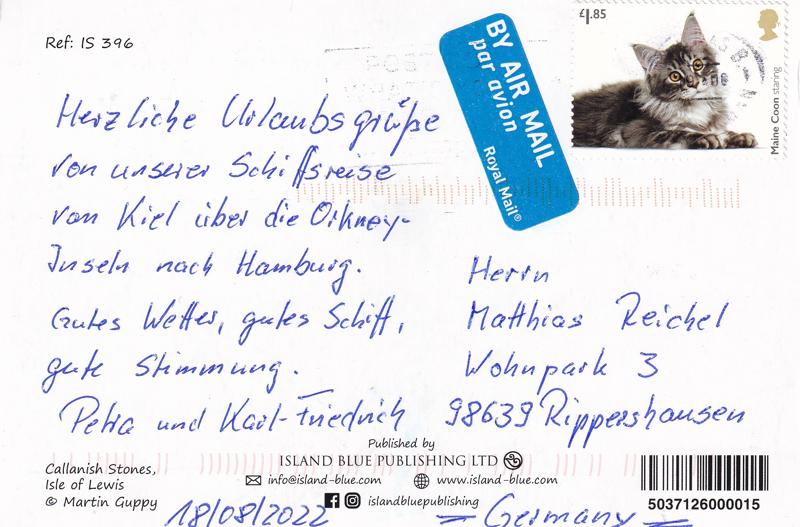 Ref: IS 396
£1.85
Maine Coon staring
BY AIR MAIL
par avion
Royal Mail®
Herzliche Urlaubsgrüße
von unserer Schiffsreise
von Kiel über die Orkney-
Inseln nach Hamburg.
Gutes Wetter, gutes Schiff,
gute Stimmung.
Petra und Karl-Friedrich
18/08/2022
Herrn
Matthias Reichel
Wohnpark 3
98639 Rippershausen
= Germany =
Callanish Stones,
Isle of Lewis
© Martin Guppy
Published by
ISLAND BLUE PUBLISHING LTD
info@island-blue.com www.island-blue.com
islandbluepublishing
5037126000015